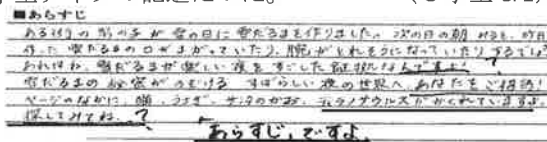 ■あらすじ
ある ... 男の子が雪の日に雪だるまを作りました。次の日の朝 みると、昨日
作った雪だるまの口がまがっていたり、腕がとれそうになっていたりするでは
あれはね、雪だるまが楽しい夜をすごした証拠なんですよ! ?
雪だるまの秘密がのぞける すばらしい夜の世界へ、あなたをご招待!
ページのなかに、猫、うさぎ、サンタのかお、ティラノサウルスがかくれていますよ。
探してみてね。?
あらすじ、ですよ